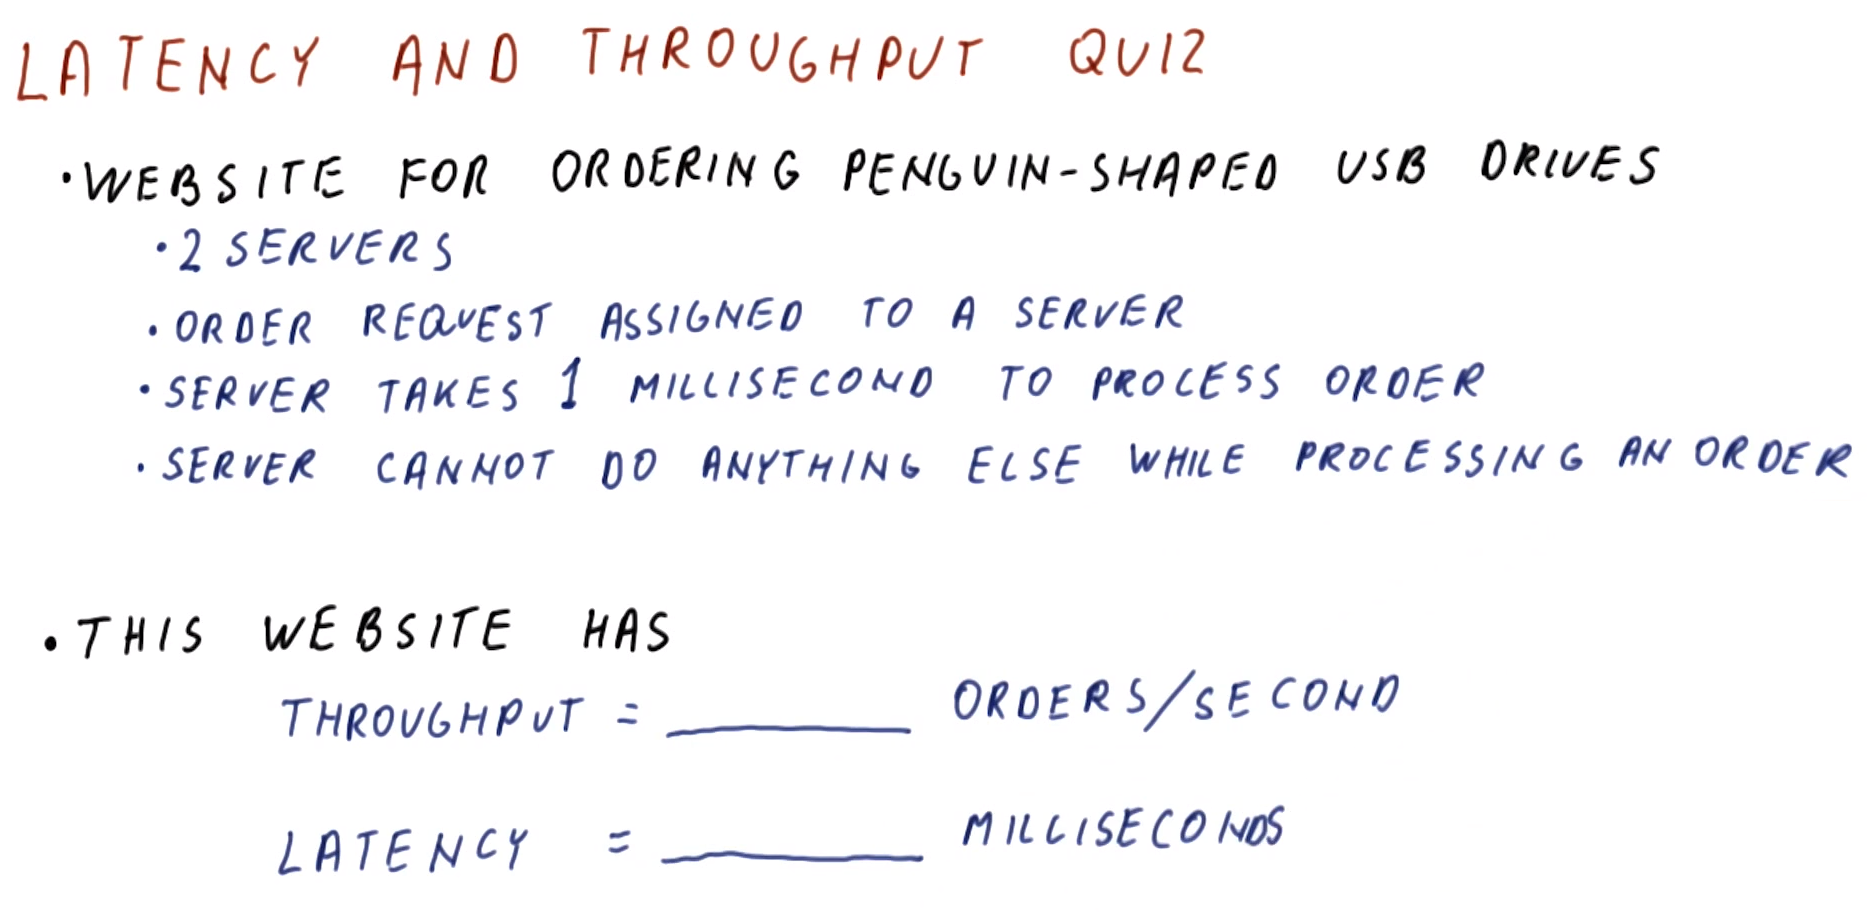 LATENCY AND THROUGHPUT QUIZ
• WEBSITE FOR ORDERING PENGUIN-SHAPED USB DRIVES
• 2 SERVERS
• ORDER REQUEST ASSIGNED TO A SERVER
• SERVER TAKES 1 MILLISECOND TO PROCESS ORDER
• SERVER CANNOT DO ANYTHING ELSE WHILE PROCESSING AN ORDER
• THIS WEBSITE HAS
THROUGHPUT = ______ ORDERS/SECOND
LATENCY = ______ MILLISECONDS